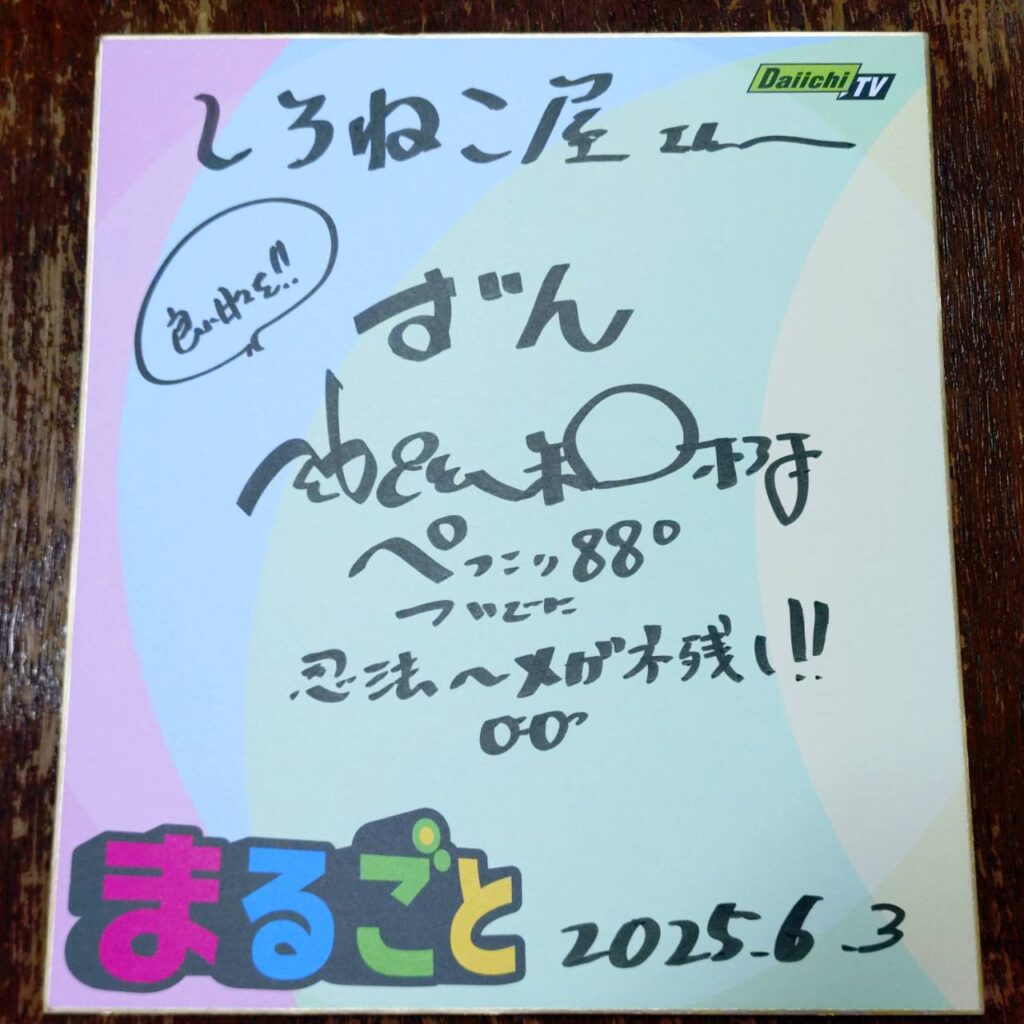 Daiichi TV
しろねこ屋さんへ
ずん
ぺっこり88°
ついでに
忍法〜メガネ残し!!
まるごと
2025.6.3